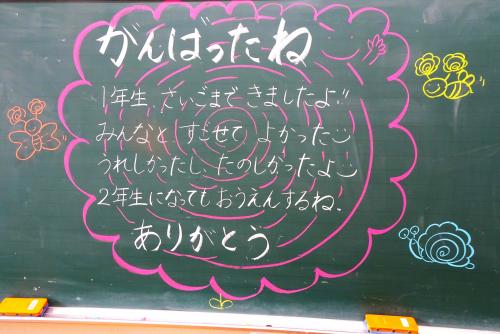 がんばったね
1年生、さいごまできましたよ!!
みんなとすごせてよかった
うれしかったし、たのしかったよ
2年生になってもおうえんするね.
ありがとう